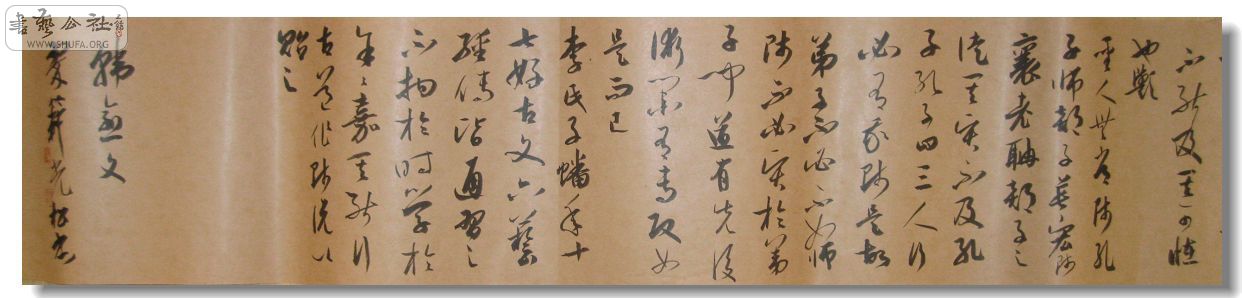 不能及其可怪
也歟
聖人無常師孔
子師郯子萇宏師
襄老聃郯子之
徒其賢不及孔
子孔子曰三人行
必有我師是故
弟子不必不如師
師不必賢於弟
子聞道有先後
術業有專攻如
是而已
李氏子蟠年十
七好古文六藝
經傳皆通習之
不拘於時學於
余余嘉其能行
古道作師說以
貽之
韓愈文
書藝公社
WWW.SHUFA.ORG